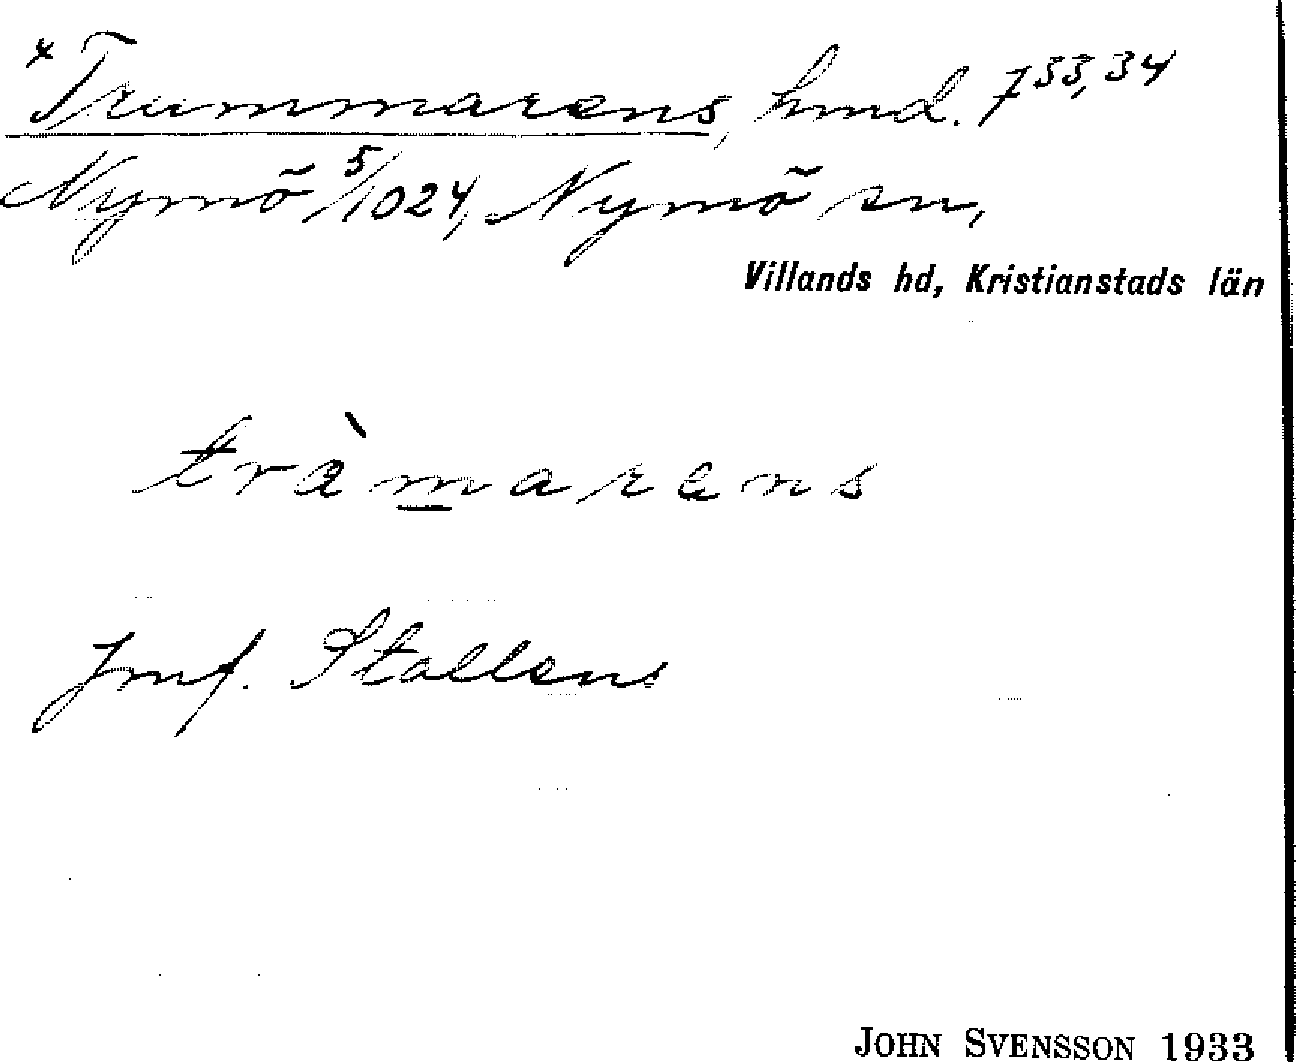 *Trummarens, hmd. 7 33, 34
Nymö 5/1024, Nymö sn,
Villands hd, Kristianstads län
tràmarens
Jmf. Stallens
JOHN SVENSSON 1933